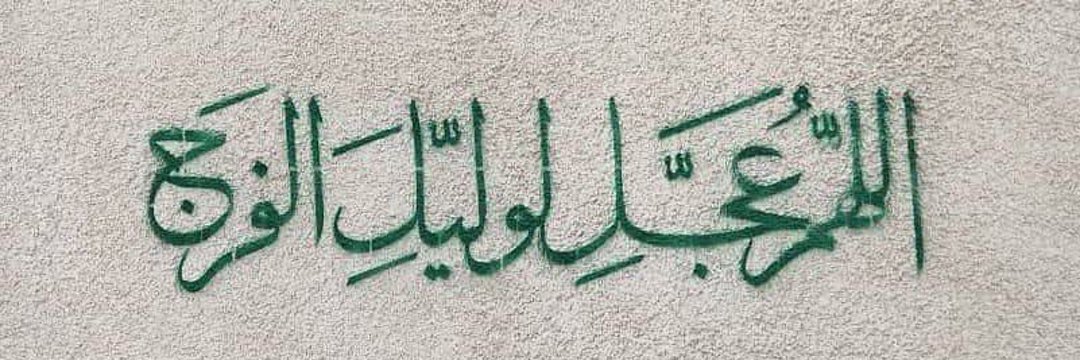 اللّهُمَّ عَجِّلْ لِوَلِيِّكَ الفَرَج